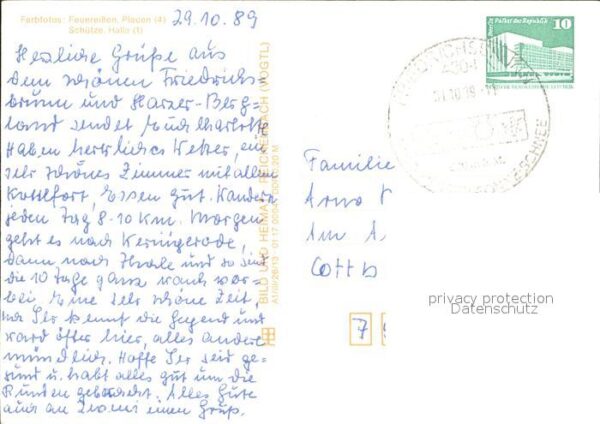 Farbfotos: Feuereißen, Plauen (4)
Schütze, Halle (1)
29.10.89
Herzliche Grüße aus
dem schönen Friedrichs-
brunn und Harzer-Berg-
land sendet Euch Charlotte
Haben herrliches Wetter, ein
sehr schönes Zimmer mit allem
Komfort, Essen gut. Wandern
jeden Tag 8-10 km. Morgen
geht es nach Wernigerode,
dann nach Thale und so sind
die 10 Tage ganz rasch vor-
bei. Eine sehr schöne Zeit,
Ihr kennt die Gegend und
ward öfter hier, alles andere
mündlich. Hoffe Ihr seid ge-
sund u. habt alles gut um die
Runden gebracht. Alles Gute
auch an einen Gruß.
BILD UND HEIMAT REICHENBACH (VOGTL)
A1/III/26/13 01 17 0094
DDR 10
Palast der Republik
Familie
Arno
Am A
Cottb
privacy protection
Datenschutz
7